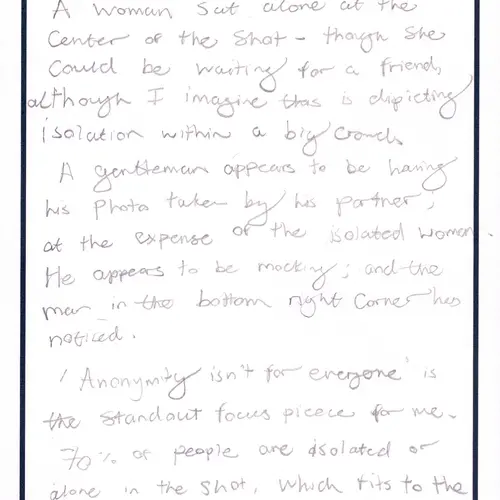 A woman sat alone at the
Center of the shot - though she
could be waiting for a friend,
although I imagine this is depicting
isolation within a big crowd.
A gentleman appears to be having
his photo taken by his partner,
at the expense of the isolated woman.
He appears to be mocking; and the
man in the bottom right corner has
noticed.
'Anonymity isn't for everyone' is
the standout focus picece for me.
70% of people are isolated or
alone in the shot, which fits to the